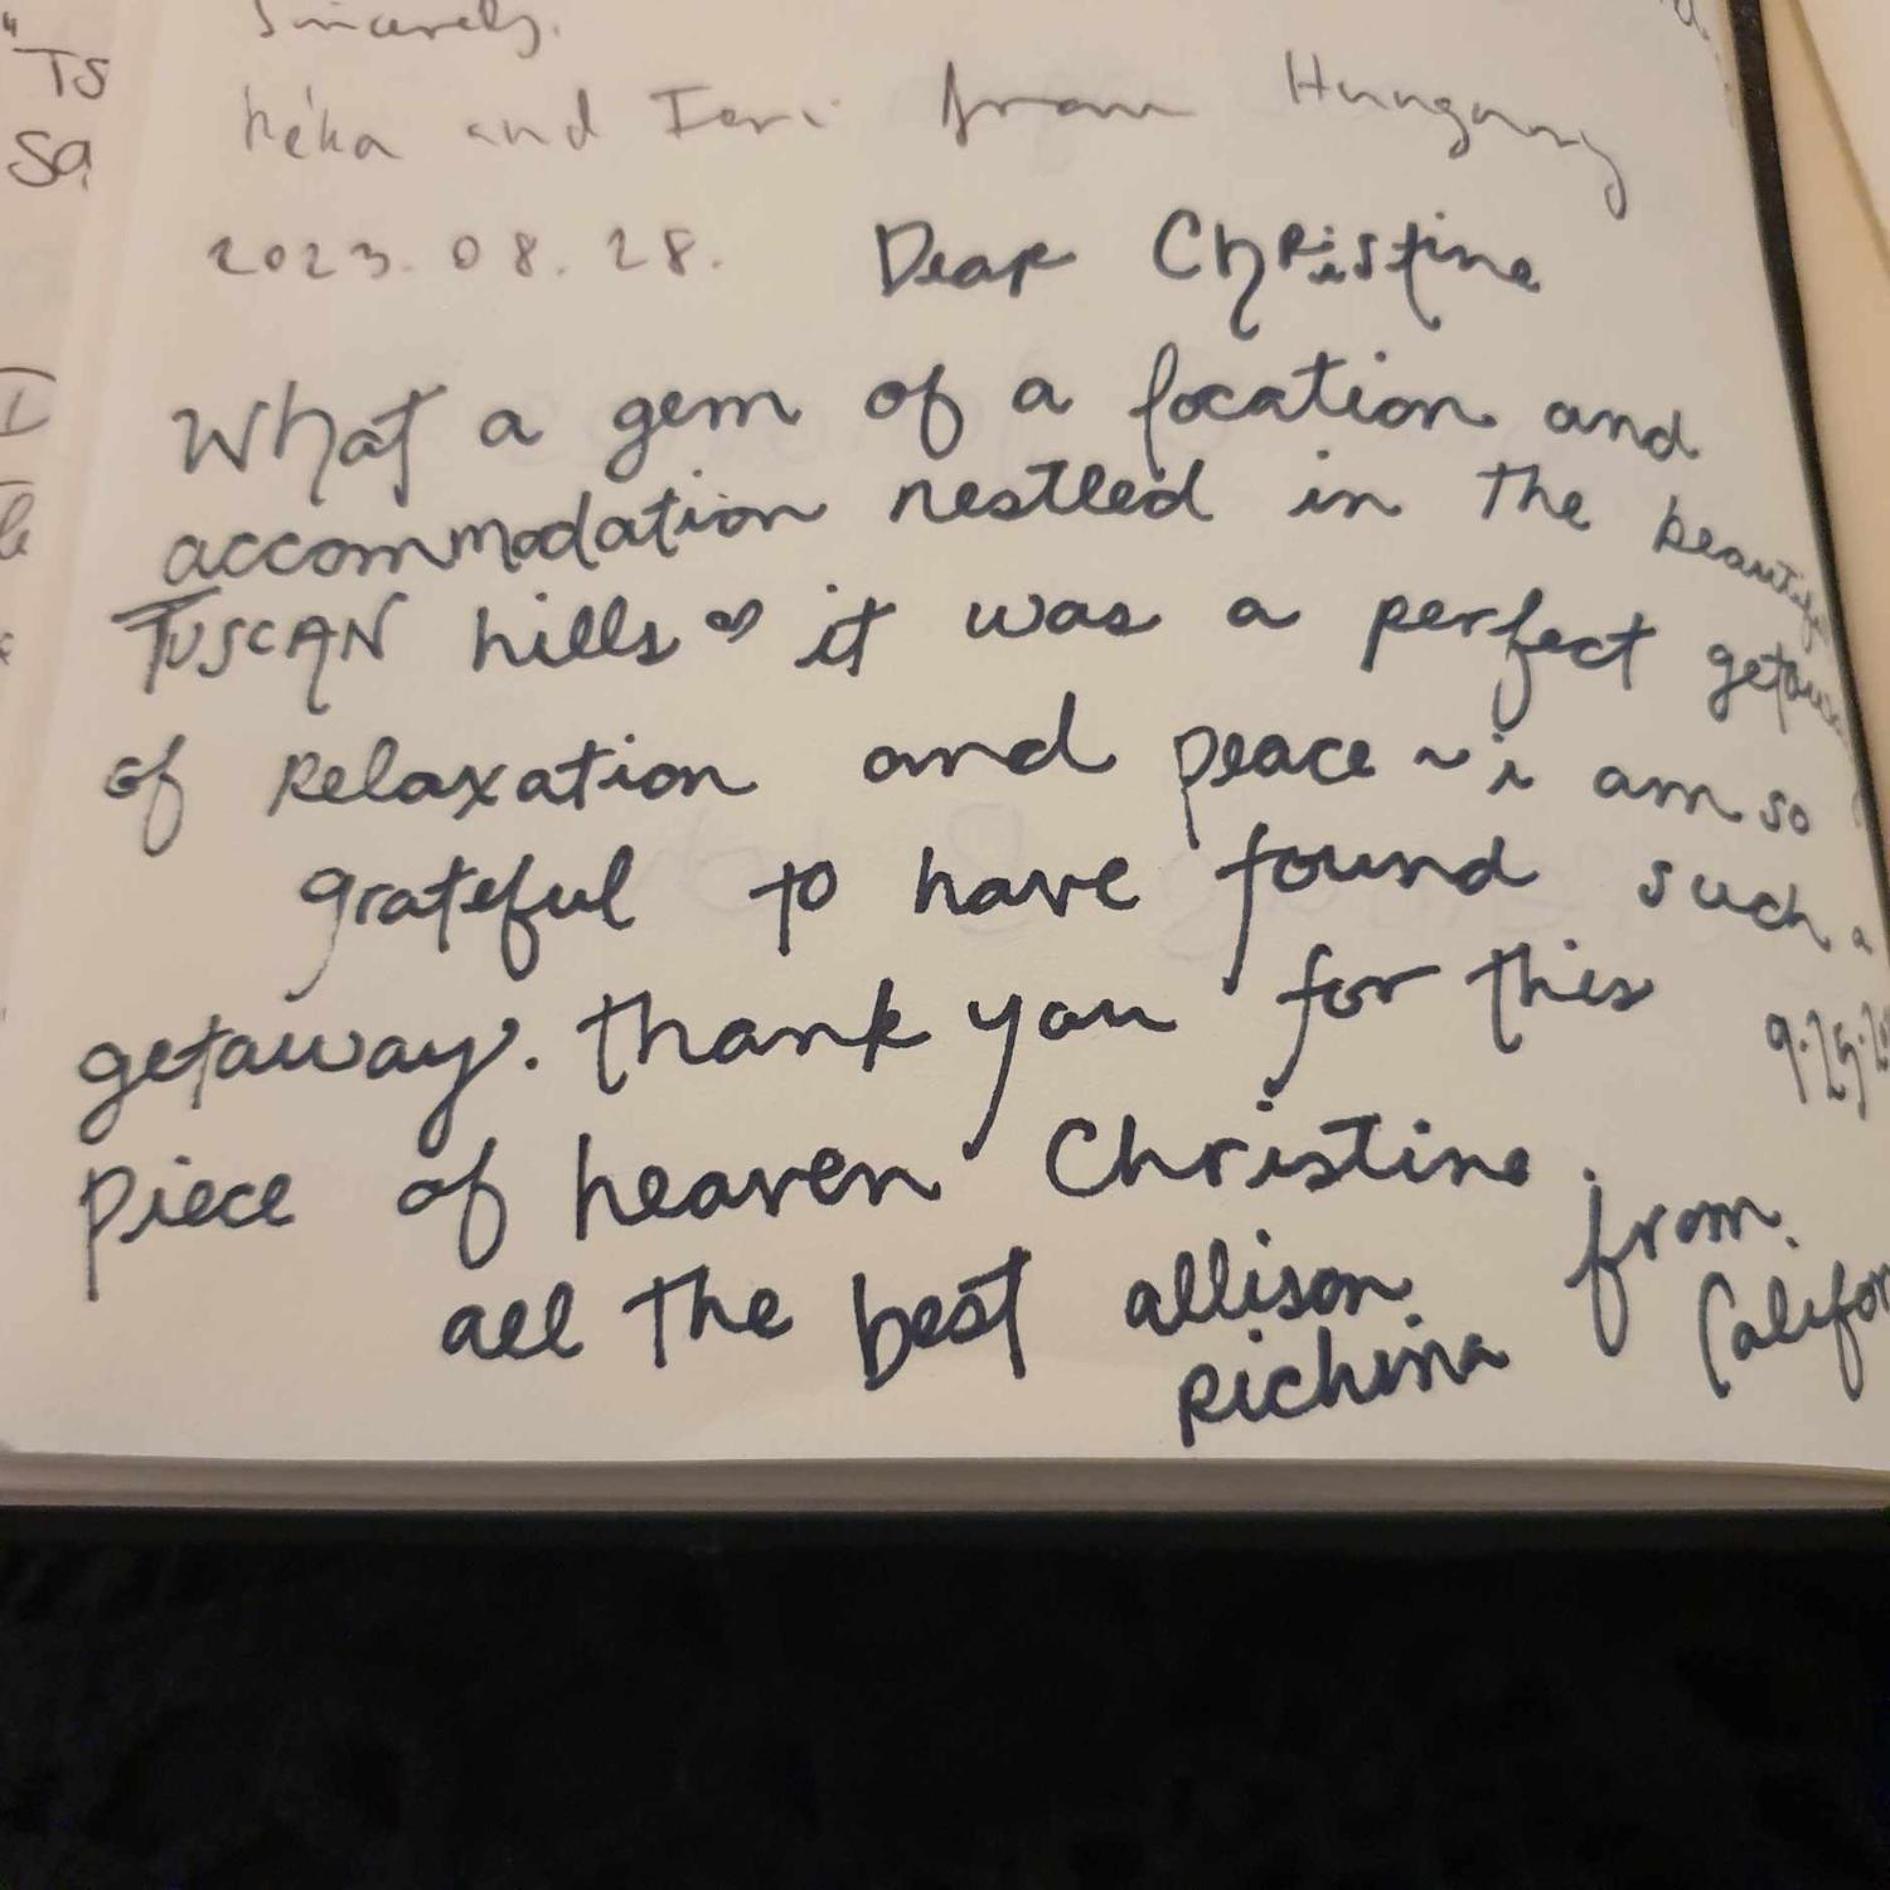 Sincerely.
Réka and Teri from Hungary
2023.08.28.
Dear Christine
What a gem of a location and
accommodation nestled in the beautiful
TUSCAN hills it was a perfect getaway
of relaxation and peace ~ i am so
grateful to have found such a
getaway. thank you for this
piece of heaven Christine.
all the best allison
Richina
from
Califor
9.25.20
TS
Sa